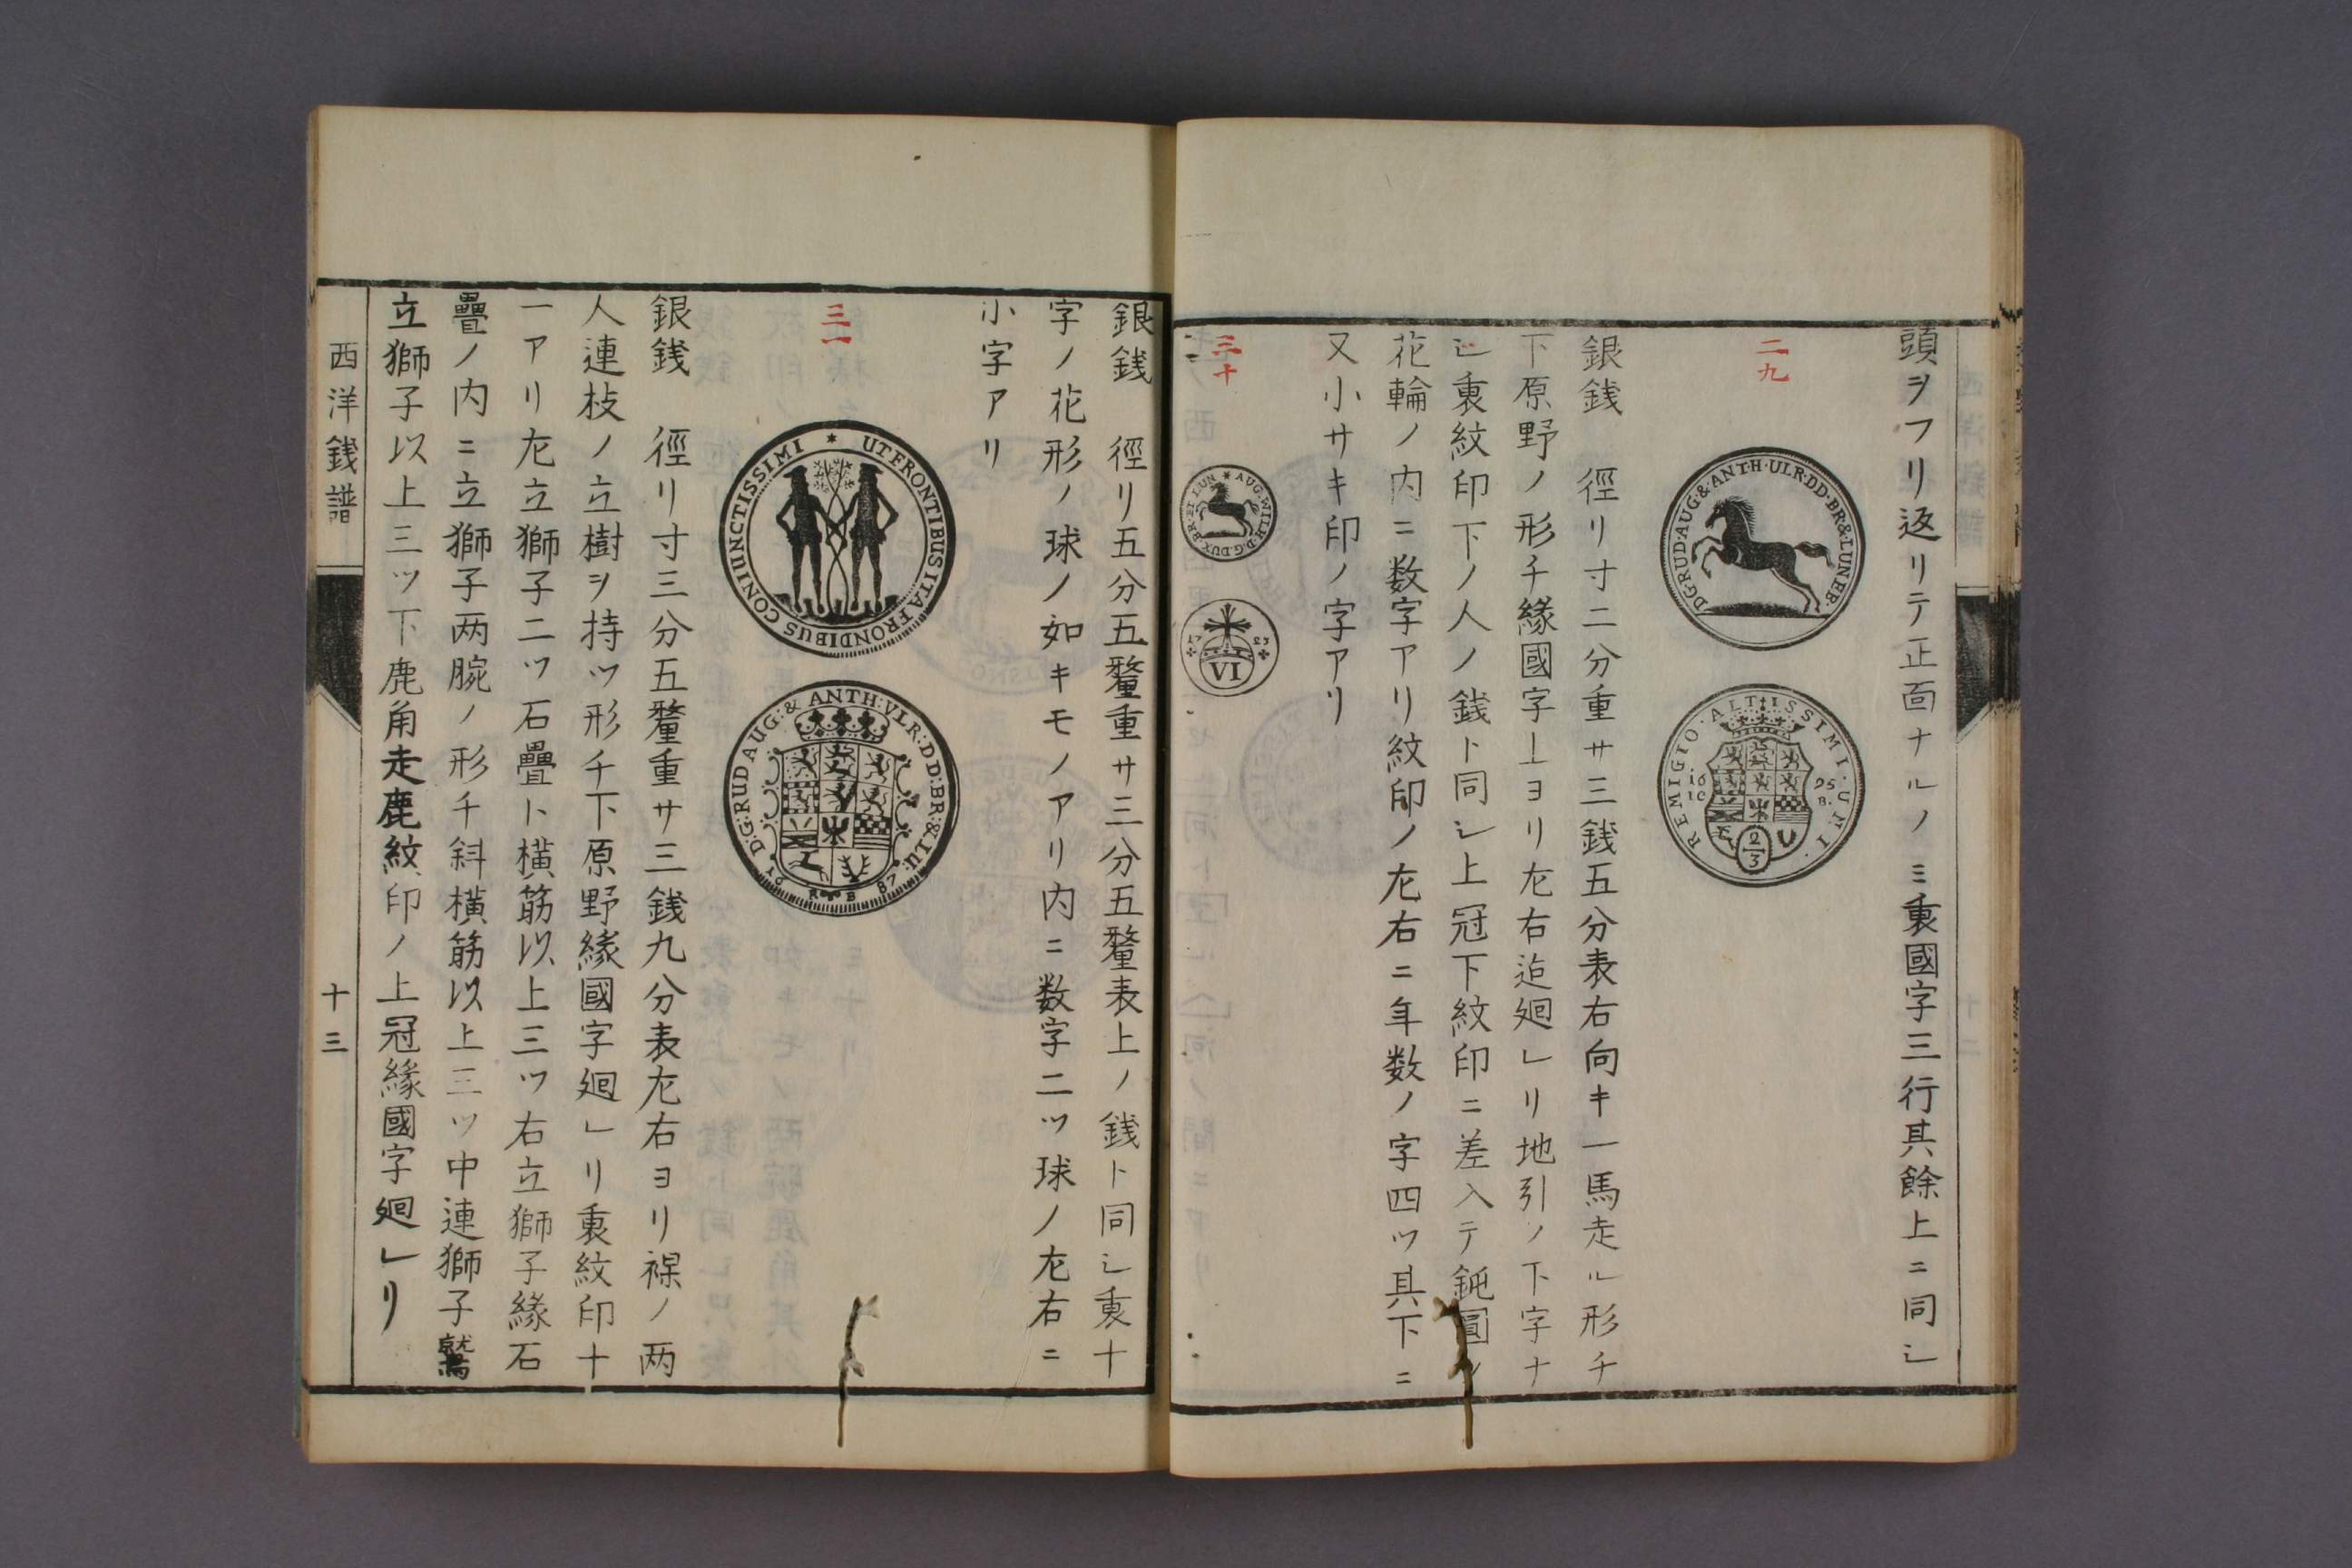 頭ヲフリ返リテ正面ナルノミ裏國字三行其餘上ニ同シ
二九
D·G·RUD·AUG·&·ANTH·ULR·DD·BR&LUNEB·
REMIGIO·ALTISSIMI·UNI·
16 95
2/3
銀銭 徑リ寸二分重サ三銭五分表右向キ一馬走ル形チ
下原野ノ形チ緣國字上ヨリ左右迠廻しリ地引ノ下字ナ
シ裏紋印下ノ人ノ銭ト同シ上冠下紋印ニ差入テ鈍圓ノ
花輪ノ内ニ数字アリ紋印ノ左右ニ年数ノ字四ツ其下ニ
又小サキ印ノ字アリ
三十
AUG·WILH·D·G·DUX·BR·ET LUN
VI
銀銭 徑リ五分五釐重サ三分五釐表上ノ銭ト同シ裏十
字ノ花形ノ球ノ如キモノアリ内ニ数字二ツ球ノ左右ニ
小字アリ
三一
UT FRONTIBUS ITA FRONDIBUS CONIUNCTISSIMI
D:G:RUD AUG:& ANTH:VLR:DD:BR:&LU:
16 R B 87
銀銭 徑リ寸三分五釐重サ三銭九分表左右ヨリ裸ノ两
人連枝ノ立樹ヲ持ツ形チ下原野緣國字廻しリ裏紋印十
一アリ左立獅子二ツ石疊ト横筋以上三ツ右立獅子緣石
疊ノ内ニ立獅子两腕ノ形チ斜横筋以上三ツ中連獅子鷲
立獅子以上三ツ下鹿角走鹿紋印ノ上冠緣國字廻しリ
西洋銭譜
十三